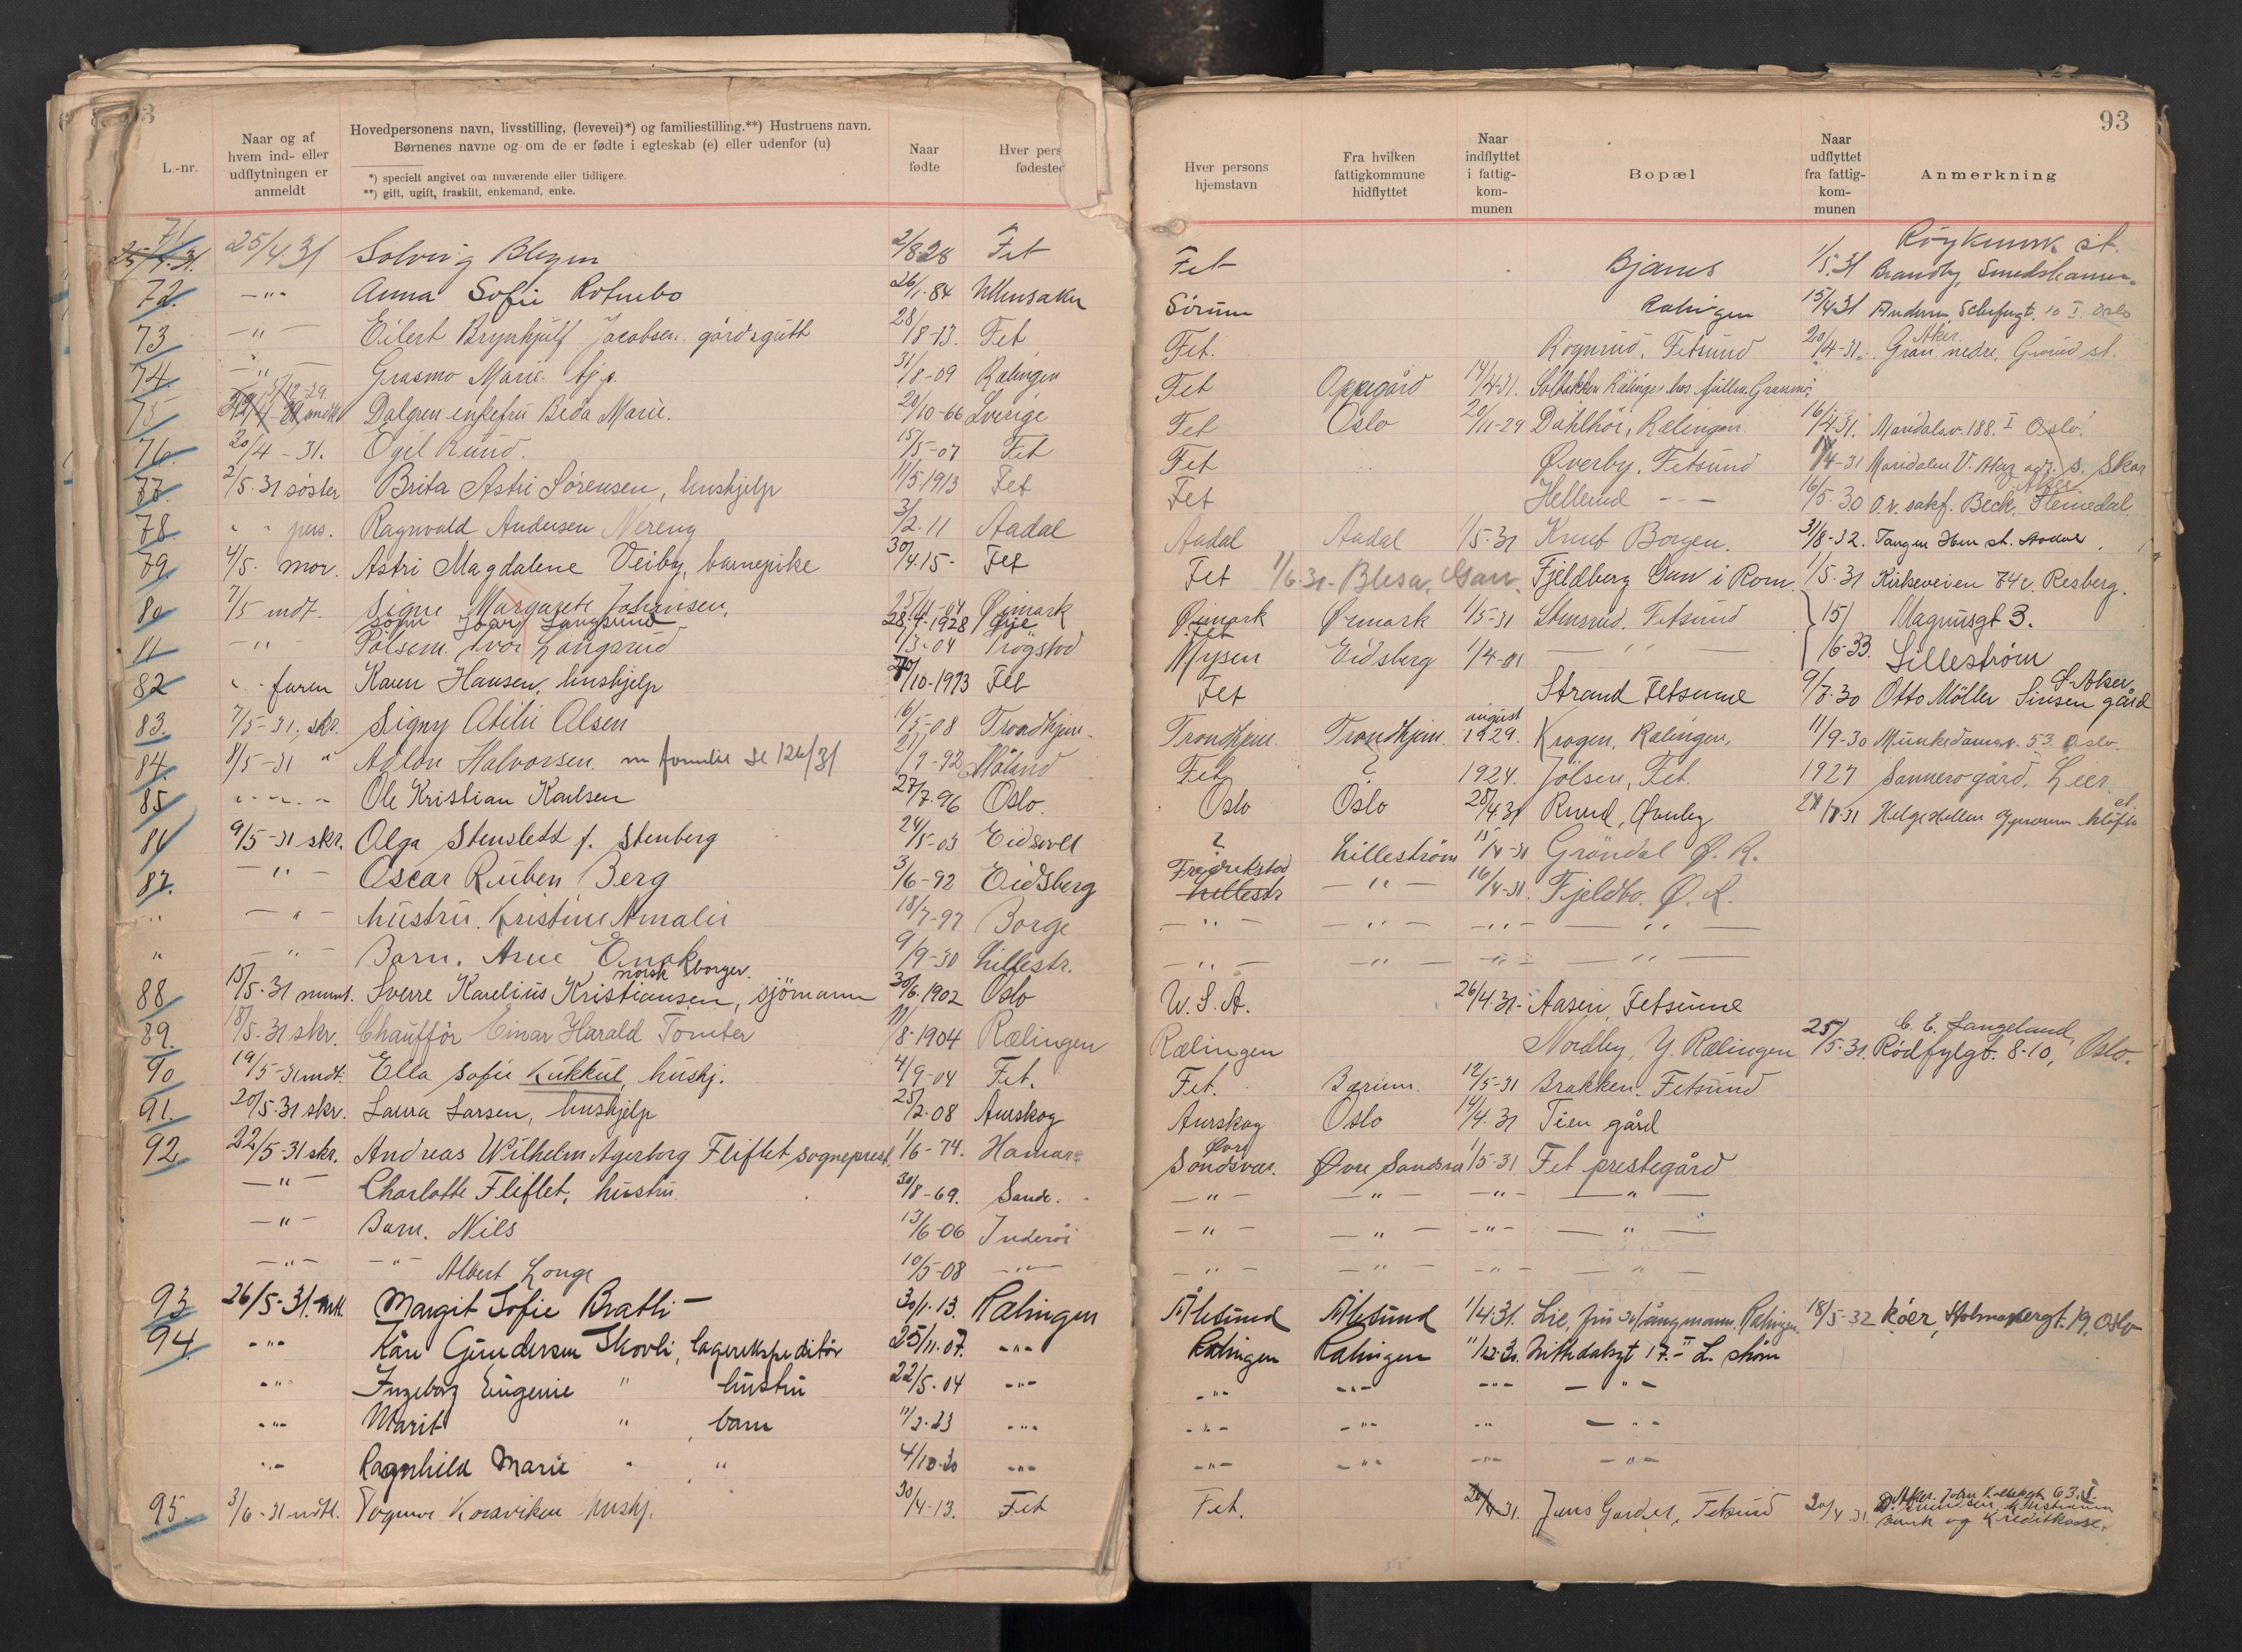 93
L.-nr.
Naar og af hvem ind- eller udflytningen er anmeldt
Hovedpersonens navn, livsstilling, (levevei)*) og familiestilling.**) Hustruens navn.
Børnenes navne og om de er fødte i egteskab (e) eller udenfor (u)
*) specielt angivet om nuværende eller tidligere.
**) gift, ugift, fraskilt, enkemand, enke.
Naar fødte
Hver pers fødested
Hver persons hjemstavn
Fra hvilken fattigkommune hidflyttet
Naar indflyttet i fattig-kom-munen
Bopæl
Naar udflyttet fra fattig-kom-munen
Anmerkning
71 25/4.31 Solveig 2/8.28 Fet Fet 1/5.31 st.
72. -"- Anna Sofie 26/1-84 Ullensaker Sörum Rælingen 15/4 31 10 I. Oslo
73 -"- Eilert Brynhjulf Jacobsen gårdsgutt 28/8-13. Fet Fet. Fetsund 20/4-31. Aker Gran nedre, Grorud st.
74. -"- Grasmo Marie 31/8-09 Rælingen Fet Oppegård 14/4-31. Solbakken Rælingen hos
75 Dalgren enkefru Beda Marie. 20/10-66 Sverige Fet Oslo 20/11-29 Rælingen 16/4 31. Maridalsv. 188. I Oslo.
76. 20/4-31. Egil Ruud. 15/5-07 Fet Fet Øverby, Fetsund 4-31 Maridalen V. Aker s. Skar
77. 2/5.31 söster Brita Astri Sörensen, hushjelp 11/5.1913 Fet Fet Hellerud - - 16/5-30 O.r. sakf. Beck,
78. " " pers. Ragnvald Andersen Nereng 3/2.11 Aadal Aadal Aadal 1/5-31 Knut Borgen. 31/8-32. Tangen Hen st. Aadal
79 4/5. mor. Astri Magdalene Veiby, barnepike 30/4.15- Fet Fet 1/6.31- Fjeldberg Gan i Rom. 1/5.31 Kirkeveien 74c. Resberg.
80 7/5 mdt. Signe Margarete Johansen, 04 Ørmark Ørmark 1/5-31 Stensrud. Fetsund 15/ Magnusgt 3.
Sönn 28.4.1928 Fet
11 -"- Polsem. Ivar Langsrud 3-04 Trögstad Mysen Eidsberg 1/4-31 -"- 6-33. Lilleström
82 " - faren Karen Hansen, hushjelp 10-1913 Fet Fet Strand Fetsund 9/7.30 Otto Möller Sinsen gård
83. 7/5-31. skr. Signy Atilie Olsen 16/5-08 Trondhjem. Trondhjem. Trondhjem. august 1929. Krogen, Rælingen, 11/9-30 Munkedamsv. 53. Oslo.
84. 8/5-31 " Halvorsen. m familie 9-92 Höland Fet ? 1924. Jölsen, Fet. 1927 gård, Lier.
85 " - " - Ole Kristian Karlsen 27/7.96 Oslo. Oslo Oslo 28/4.31 Ruud,
86 9/5-31 skr. Olga Stensledt f. Stenberg 24/5-03 Eidsvoll ? Lilleström 15/4-31 Gröndal Ø. R.
87. -"- Oscar Ruben Berg 3/6-92 Eidsberg Fredrikstad Lillestr -"- 16/4-31. Fjeldbo. Ø. R.
" -"- hustru. Kristine Amalie 18/7-97 Borge -"- -"- -"- -"-
" -"- Barn. Arne Enok 9/9-30 Lillestr. -"- -"- -"- -"-
norsk borger.
88 15/5.31 munt. Sverre Karelius Kristiansen, sjömann 30/6.1902 Oslo U.S.A. 26/4.31- Aasen, Fetsund
89. 18/5.31 skr. Chaufför Einar Harald Tomter 11/8-1904 Rælingen Rælingen Nordby, Y. Rælingen 25/5.31. C. E. Langeland, Rödfylgt. 8-10, Oslo.
90 19/5-31 mdt. Ella Sofie Kukkul, hushj. 4/9-04 Fet. Fet. Bærum. 12/5-31 Brakken. Fetsund
91. 20/5.31 skr. Laura Larsen, hushjelp 25/2.08 Aurskog Aurskog Oslo 14/4.31 Tien gård
92. 22/5-31 skr. Andreas Wilhelm Agerborg Fliflet sogneprest. 1/6-74. Hamar Øvre Sandsvær. Øvre Sandsvær 1/5-31 Fet prestegård
-"- Charlotte Fliflet, hustru. 30/8-69. Sande. -"- -"- -"- -"-
-"- Barn. Nils 13/6-06 Inderöi -"- -"- -"- -"-
-"- -"- Albert Longe 10/5-08 -"- -"- -"- -"- -"-
93 26/5-31. Margit Sofie Bratli - 30/1.13. Rælingen Ålesund Ålesund 1/4.31. Lie, Rælingen. 18/5-32 Holmenbergt. 19, Oslo
94. -"- Kåre Gundersen Skovli, lagerekspeditör 25/11.07. -"- Rælingen Rælingen 11/12-30. Nittedalsgt 17.-II L. ström
-"- Ingeborg Eugenie " hustru 22/5-04 -"- -"- -"- -"- -"-
-"- Marit " barn 11/2-23 -"- -"- -"- -"- -"-
-"- Ragnhild Marie " " 4/10-30 -"- -"- -"- -"- -"-
95. 3/6-31 mdtl. hushj. 30/4-13. Fet Fet. 31. Jens Garder, Fetsund 30/4 31. bank og Kreditkasse.